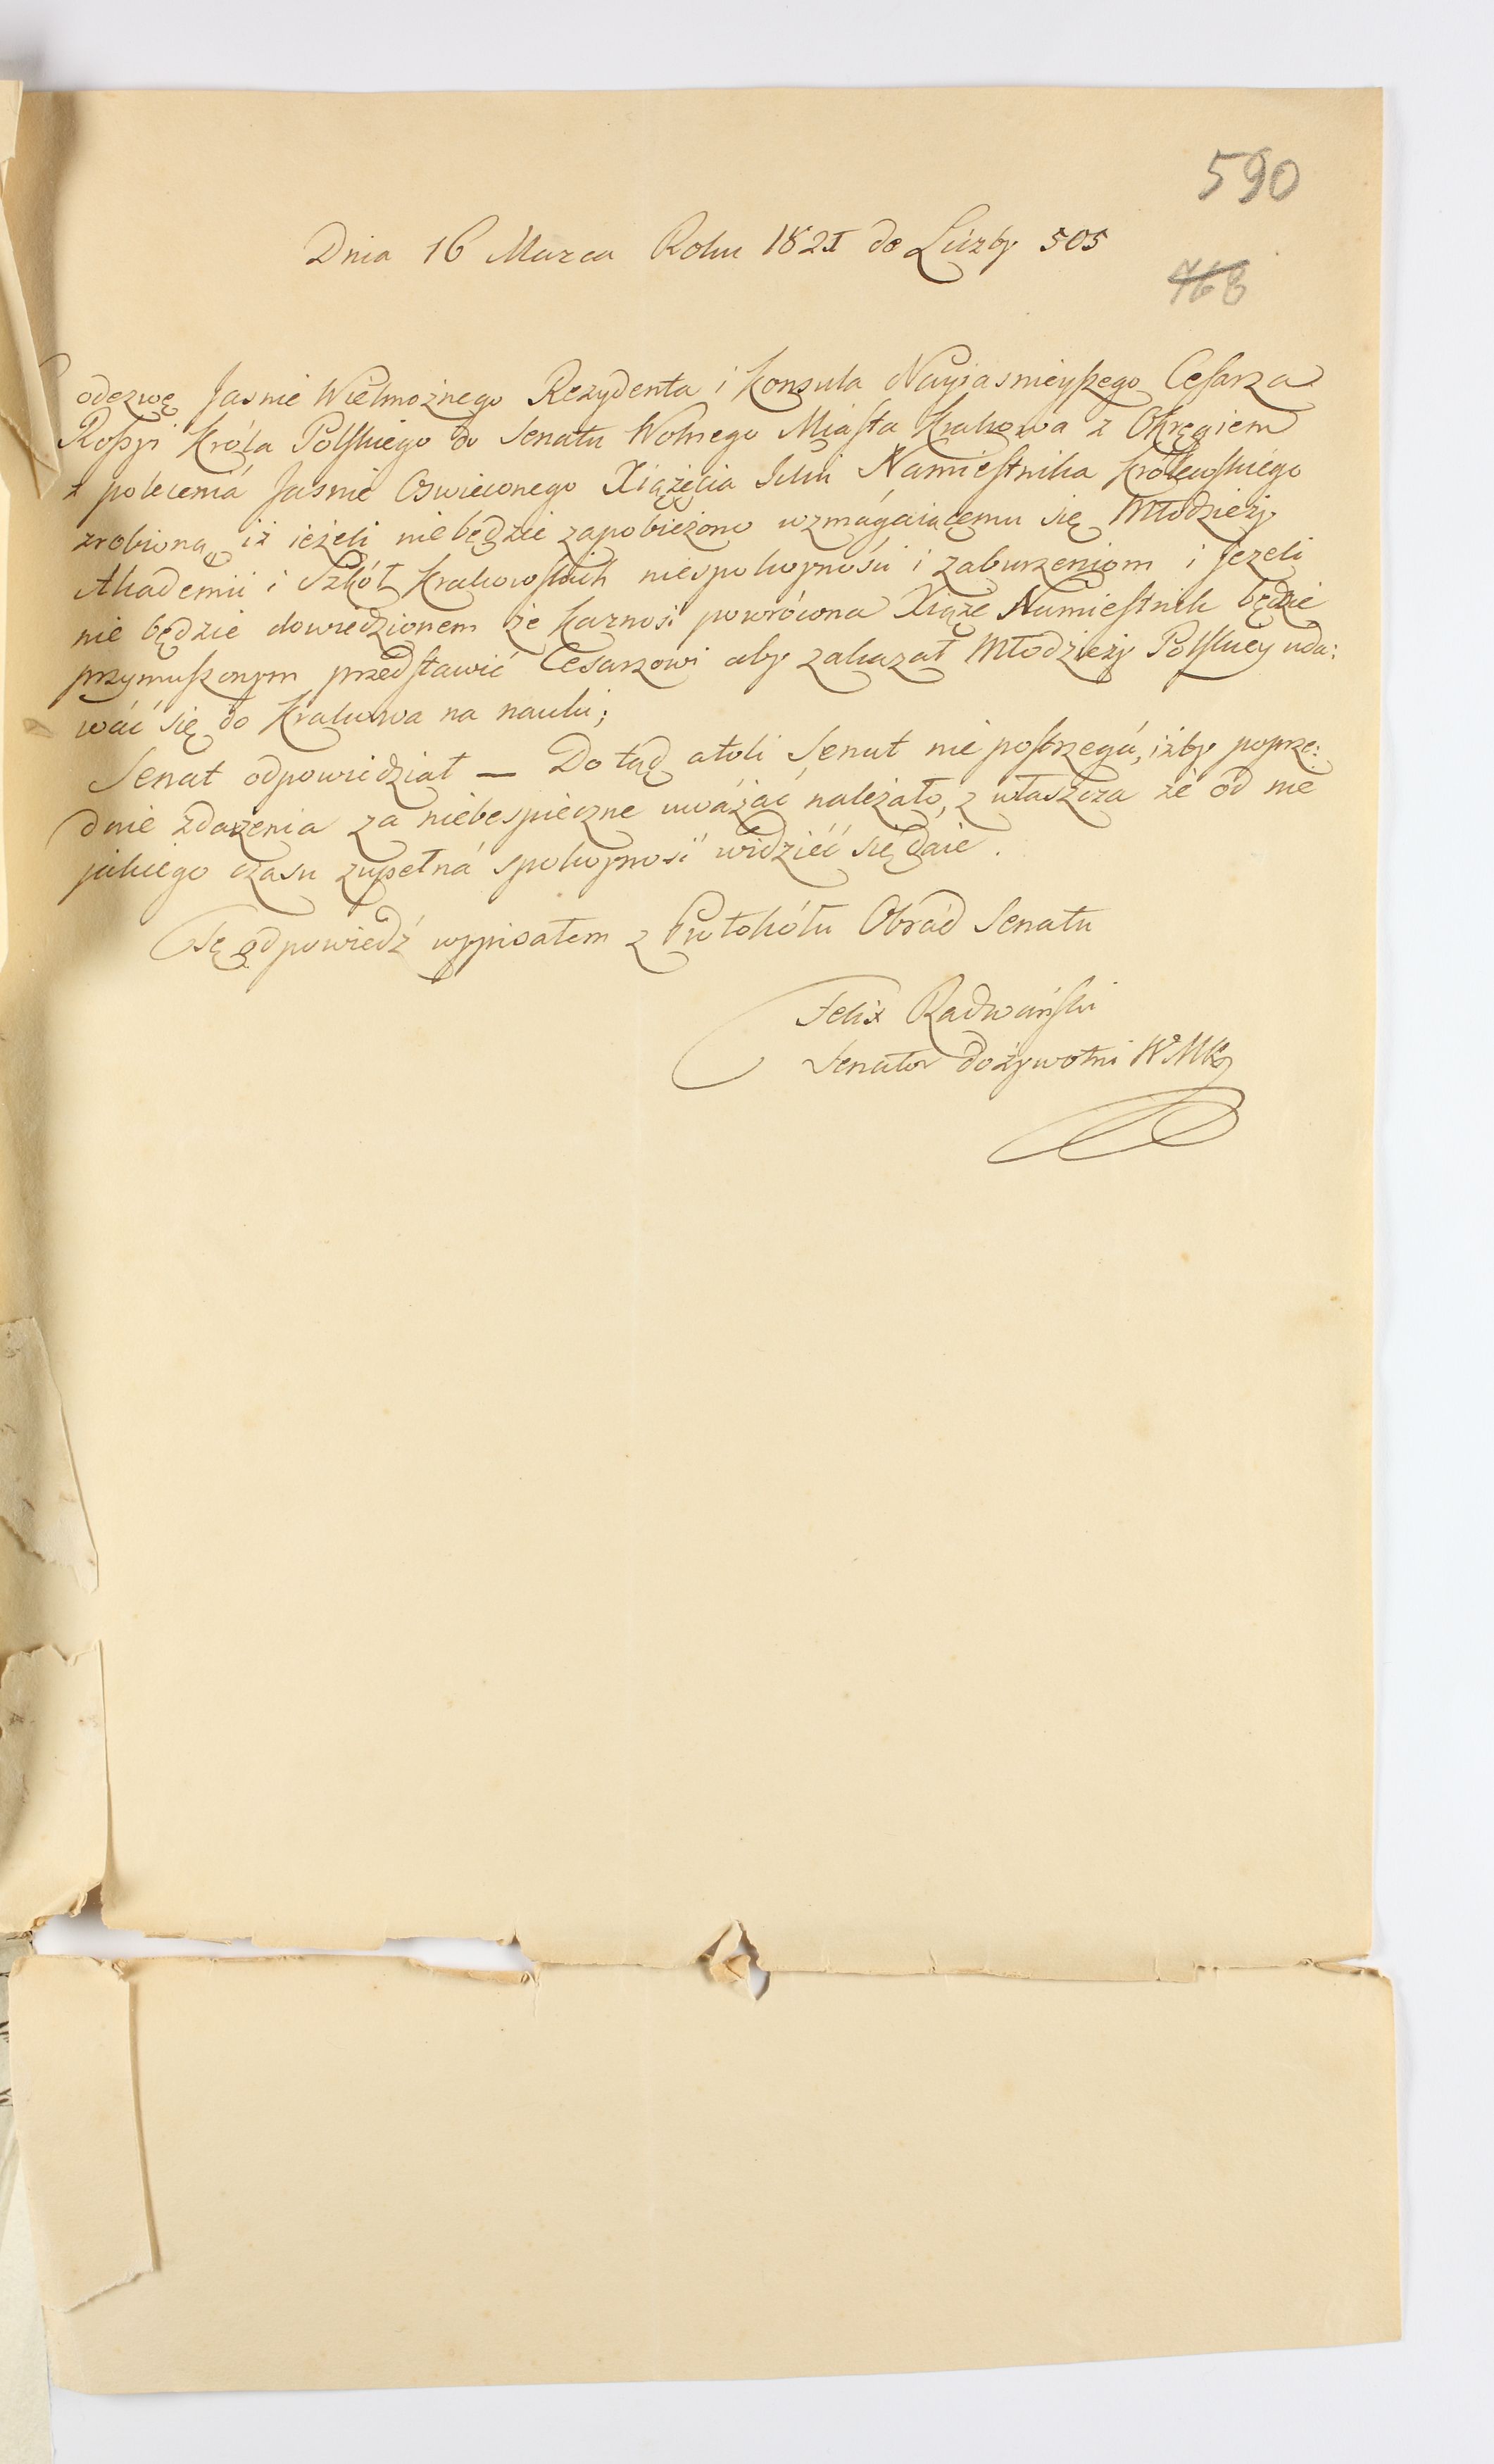 590
Dnia 16 Marca Roku 1821 do Liczby 505
768
odezwę Jasnie Wielmożnego Rezydenta i Konzula Nayjasnieyszego Cesarza
Rossyi Króla Polskiego do Senatu Wolnego Miasta Krakowa z Okręgiem
z polecenia Jasnie Oswieconego Xiążęcia Namiestnika Królewskiego
zrobioną iż ieżeli nie będzie zapobieżono wzmagaiącemu się Młodzieży
Akademii i Szkół Krakowskich niespokoyności i zaburzeniom i Jezeli
nie będzie dowiedzionem że karność powrócona Xiąże Namiestnik będzie
przymuszonym przedstawić Cesarzowi aby zakazał Młodzieży Polskiey uda:
wać się do Krakowa na nauki;
Senat odpowiedział — Do tąd atoli Senat nie postrzega, iżby poprze:
dnie zdarzenia za niebespieczne uważać należało, z właszcza że od nie
jakiego czasu zupełna spokoyność widzieć się daie.
Tę odpowiedź wypisałem z Protokółu Obrad Senatu
Felix Radwański
Senator dożywotni WMK